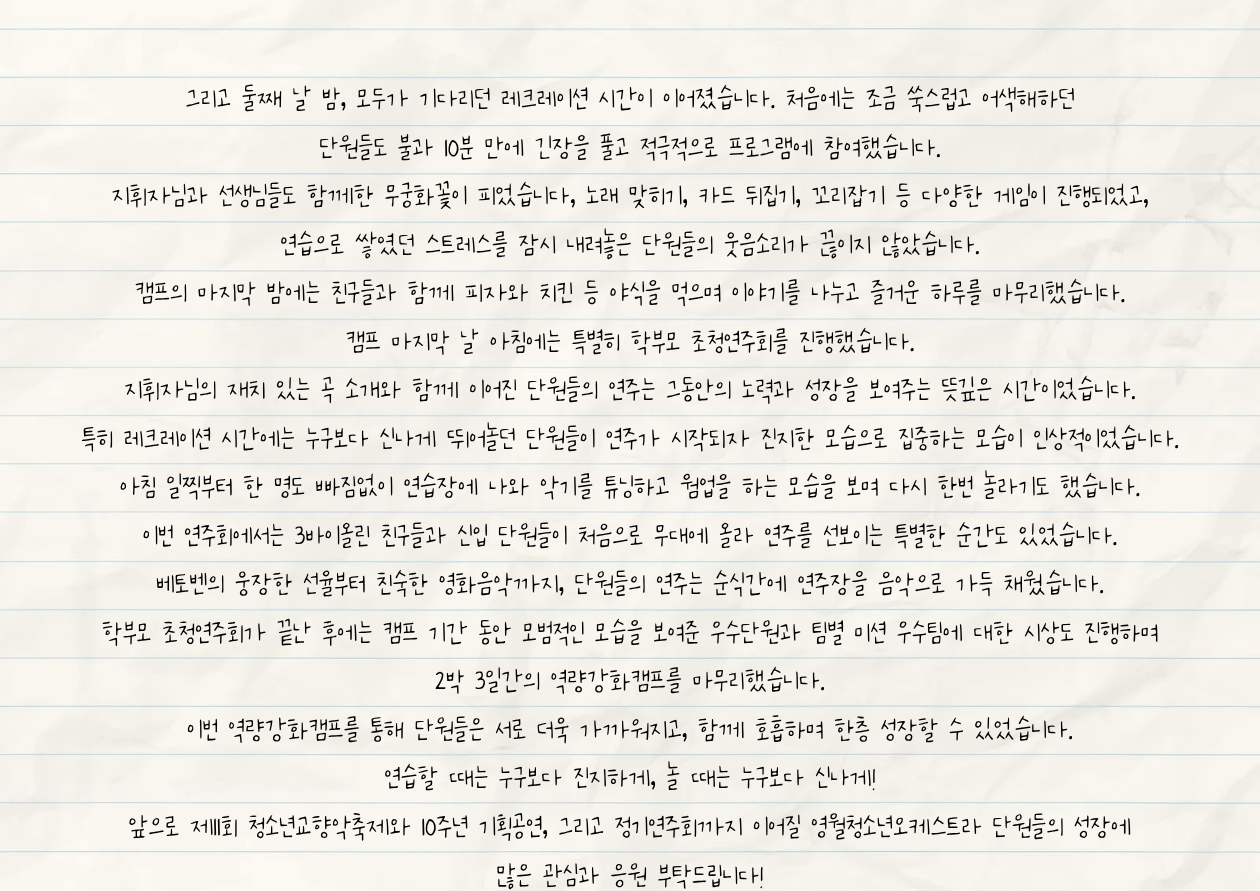 그리고 둘째 날 밤, 모두가 기다리던 레크레이션 시간이 이어졌습니다. 처음에는 조금 쑥스럽고 어색해하던
단원들도 불과 10분 만에 긴장을 풀고 적극적으로 프로그램에 참여했습니다.
지휘자님과 선생님들도 함께한 무궁화꽃이 피었습니다, 노래 맞히기, 카드 뒤집기, 꼬리잡기 등 다양한 게임이 진행되었고,
연습으로 쌓였던 스트레스를 잠시 내려놓은 단원들의 웃음소리가 끊이지 않았습니다.
캠프의 마지막 밤에는 친구들과 함께 피자와 치킨 등 야식을 먹으며 이야기를 나누고 즐거운 하루를 마무리했습니다.
캠프 마지막 날 아침에는 특별히 학부모 초청연주회를 진행했습니다.
지휘자님의 재치 있는 곡 소개와 함께 이어진 단원들의 연주는 그동안의 노력과 성장을 보여주는 뜻깊은 시간이었습니다.
특히 레크레이션 시간에는 누구보다 신나게 뛰어놀던 단원들이 연주가 시작되자 진지한 모습으로 집중하는 모습이 인상적이었습니다.
아침 일찍부터 한 명도 빠짐없이 연습장에 나와 악기를 튜닝하고 웜업을 하는 모습을 보며 다시 한번 놀라기도 했습니다.
이번 연주회에서는 3바이올린 친구들과 신입 단원들이 처음으로 무대에 올라 연주를 선보이는 특별한 순간도 있었습니다.
베토벤의 웅장한 선율부터 친숙한 영화음악까지, 단원들의 연주는 순식간에 연주장을 음악으로 가득 채웠습니다.
학부모 초청연주회가 끝난 후에는 캠프 기간 동안 모범적인 모습을 보여준 우수단원과 팀별 미션 우수팀에 대한 시상도 진행하며
2박 3일간의 역량강화캠프를 마무리했습니다.
이번 역량강화캠프를 통해 단원들은 서로 더욱 가까워지고, 함께 호흡하며 한층 성장할 수 있었습니다.
연습할 때는 누구보다 진지하게, 놀 때는 누구보다 신나게!
앞으로 제III회 청소년교향악축제와 10주년 기획공연, 그리고 정기연주회까지 이어질 영월청소년오케스트라 단원들의 성장에
많은 관심과 응원 부탁드립니다!